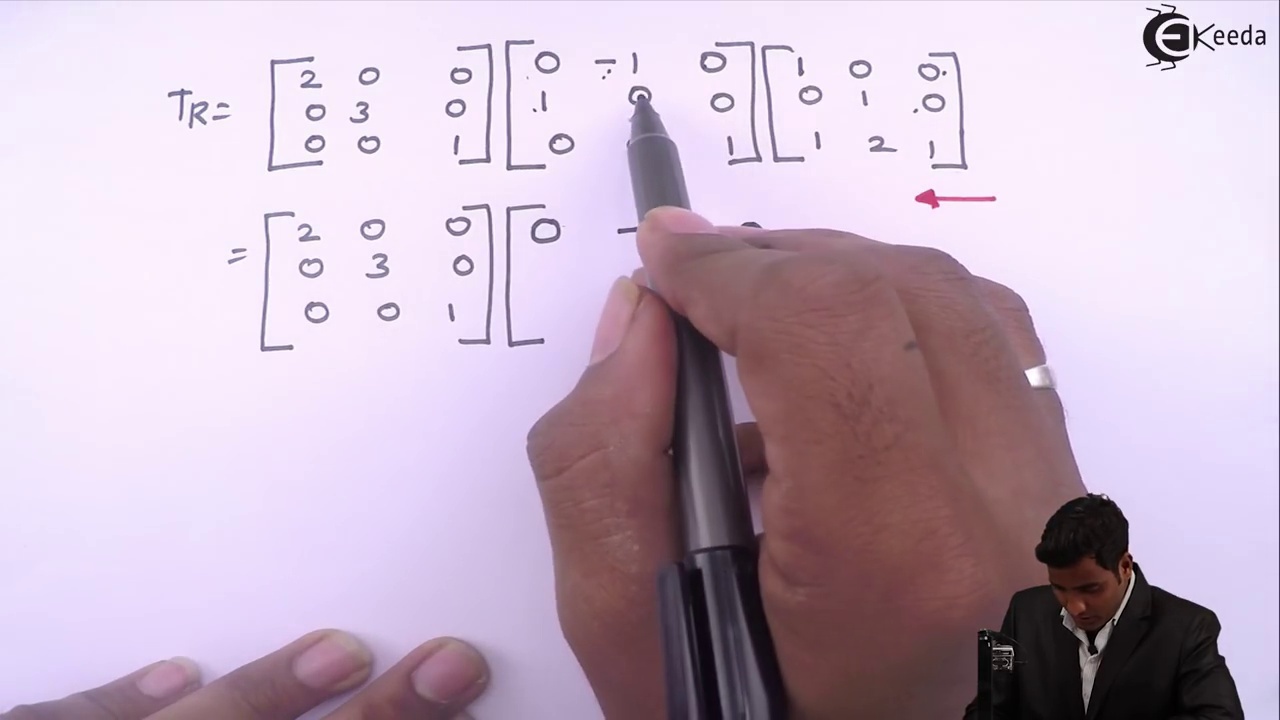 EKeeda
TR = [2 0 0] [0 -1 0] [1 0 0]
[0 3 0] [1 0 0] [0 1 0]
[0 0 1] [0 1] [1 2 1]
= [2 0 0] [0 -
[0 3 0] [
[0 0 1] [